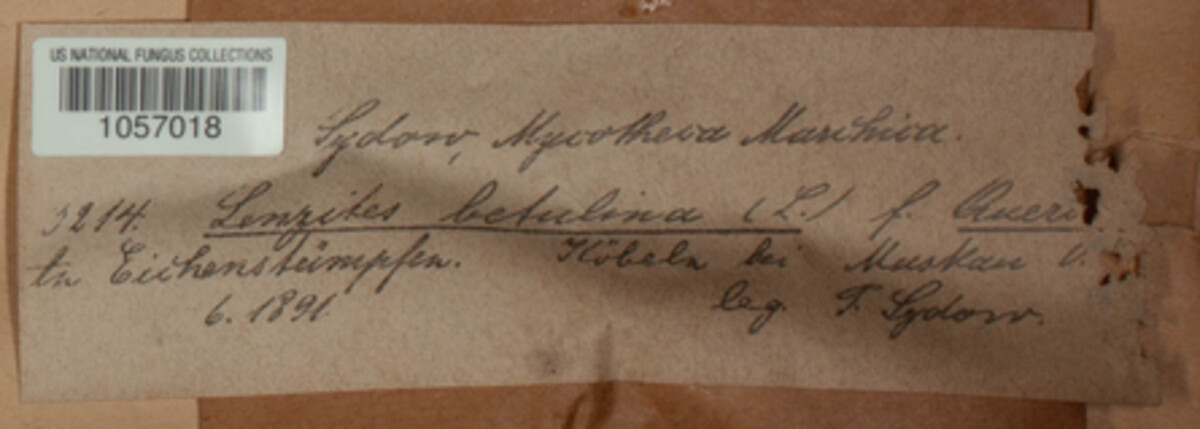 US NATIONAL FUNGUS COLLECTIONS
1057018
Sydow, Mycotheca Marchica.
3214. Lenzites betulina (L.) f. Querc
An Eichenstümpfen. Köbeln bei Muskau
6. 1891 leg. P. Sydow.